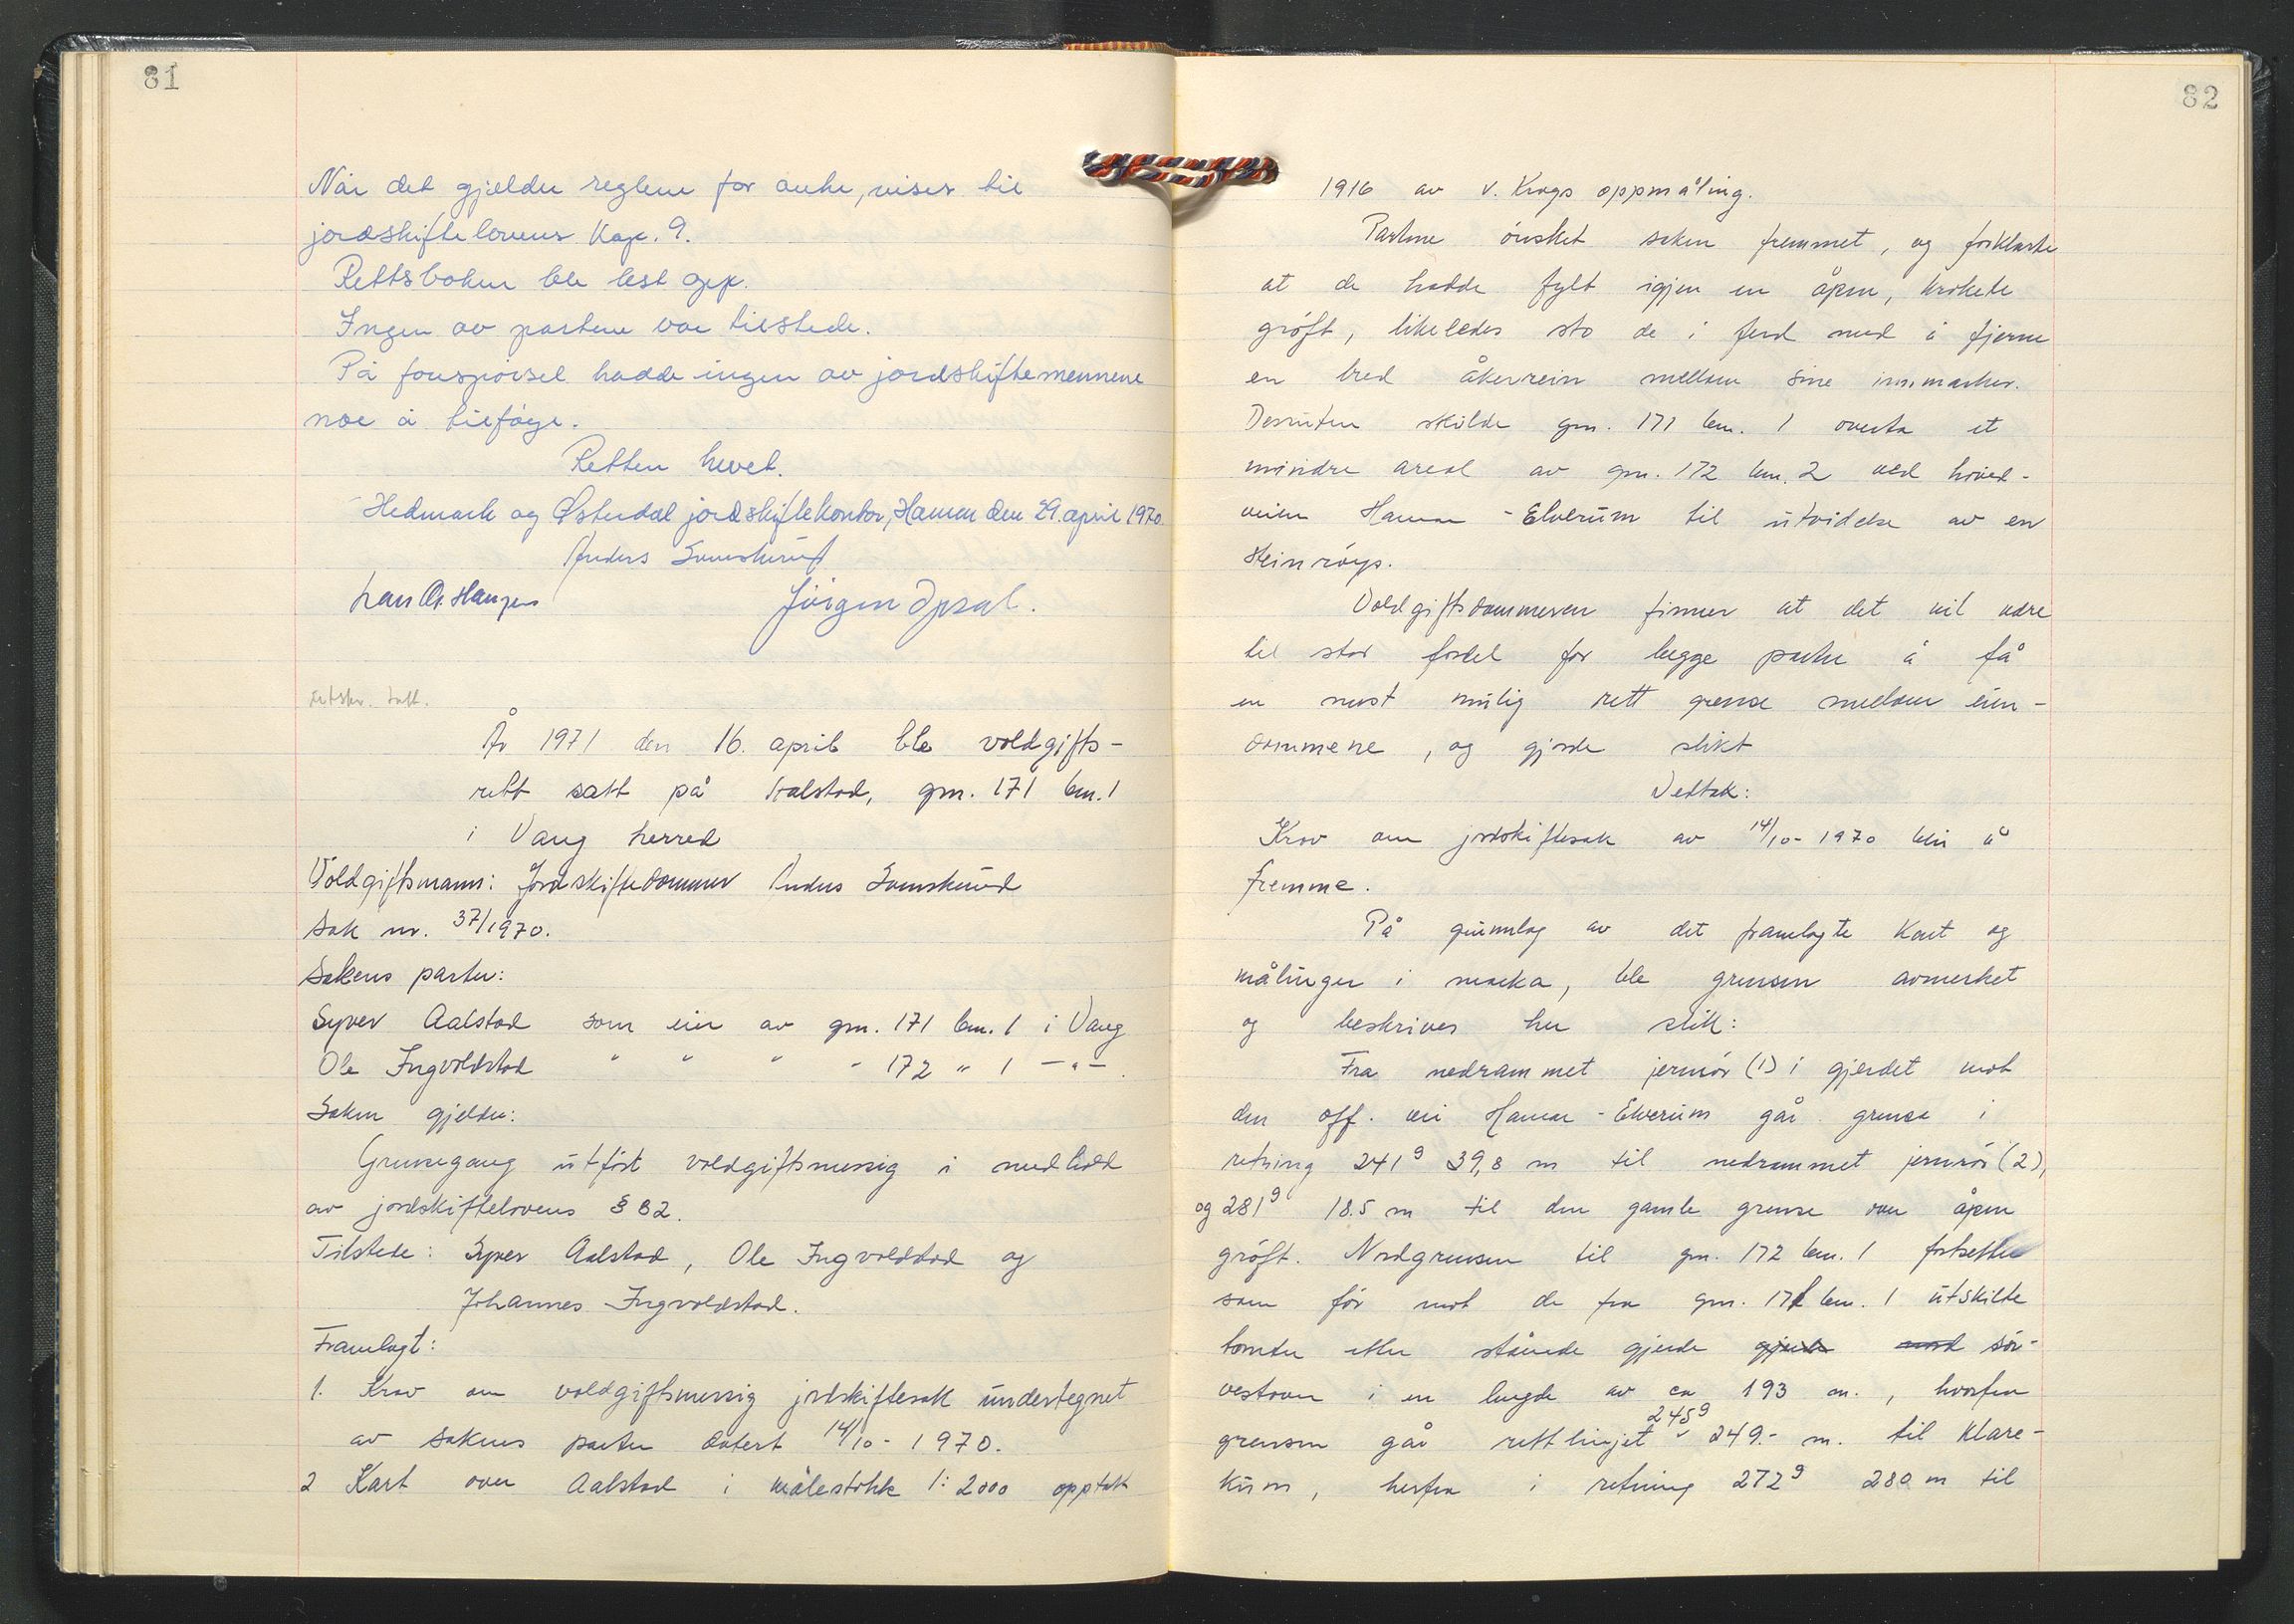 81
Når det gjelder reglene for anke, vises til
jordskiftelovens Kap. 9.
Rettsboken ble lest opp.
Ingen av partene var tilstede.
På forespørsel hadde ingen av jordskiftemennene
noe å tilføye.
Retten hevet.
Hedmark og Østerdal jordskiftekontor, Hamar den 29. april 1970.
Anders
Jörgen Opsal.
utskr. tatt.
År 1971 den 16. april ble voldgifts-
rett satt på Aalstad, gnr. 171 bnr. 1
i Vang herred
Voldgiftsmann: Jordskiftedommer Anders
Sak nr. 37/1970.
Sakens parter:
Syver Aalstad som eier av gnr. 171 bnr. 1 i Vang
Ole Ingvoldstad " " " " 172 " 1 —"—.
Saken gjelder:
Grensegang utfört voldgiftsmessig i medhold
av jordskiftelovens § 82.
Tilstede: Syver Aalstad, Ole Ingvoldstad og
Johannes Ingvoldstad.
Framlagt:
1. Krav om voldgiftsmessig jordskiftesak undertegnet
av sakens parter datert 14/10- 1970.
2 Kart over Aalstad i målestokk 1:2000 opptatt
82
1916 av v. Krogs oppmåling.
Partene ønsket saken fremmet, og forklarte
at de hadde fylt igjen en åpen, krokete
gröft, likeledes sto de i ferd med å fjerne
en bred åkerrein mellom sine innmarker.
Dessuten skulde gnr. 171 bnr. 1 overta et
mindre areal av gnr. 172 bnr. 2 ved hoved-
veien Hamar - Elverum til utvidelse av en
steinröys.
Voldgiftsdommeren finner at det vil være
til stor fordel for begge parter å få
en mest mulig rett grense mellom eien-
dommene, og gjorde slikt
Vedtak:
Krav om jordskiftesak av 14/10- 1970 blir å
fremme.
På grunnlag av det framlagte Kart og
målinger i marka, ble grensen avmerket
og beskrives her slik:
Fra nedrammet jernrör (1) i gjerdet mot
den off. vei Hamar - Elverum går grensa i
retning 241g 39,8 m til nedrammet jernrör (2),
og 281g 18.5 m til den gamle grense over åpen
gröft. Nordgrensen til gnr. 172 bnr. 1 fortsetter
som för mot de fra gnr. 171 bnr. 1 utskilte
tomter etter stående gjerde gjerde mot sör-
vestover i en lengde av ca 193 m., hvorfra
245g
grensen går rettlinjet 249.- m. til klare-
kum, herfra i retning 272g 280 m til